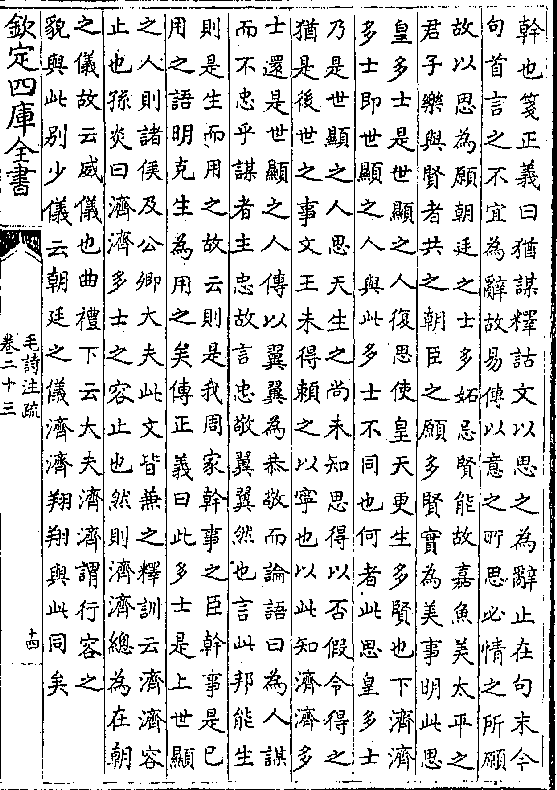 幹也箋正義曰猶謀釋詁文以思之為辭止在句末今
句首言之不宜為辭故易傳以意之所思必情之所願
故以思為願朝廷之士多妬忌賢能故嘉魚美太平之
君子樂與賢者共之朝臣之願多賢實為美事明此思
皇多士是世顯之人復思使皇天更生多賢也下濟濟
多士即世顯之人與此多士不同也何者此思皇多士
乃是世顯之人思天生之尚未知思得以否假令得之
猶是後世之事文王未得賴之以寧也以此知濟濟多
士還是世顯之人傳以翼翼為恭敬而論語曰為人謀
而不忠乎謀者主忠故言忠敬翼翼然也言此邦能生
則是生而用之故云則是我周家幹事之臣幹事是已
用之語明克生為用之矣傳正義曰此多士是上世顯
之人則諸侯及公卿大夫此文皆兼之釋訓云濟濟容
止也孫炎曰濟濟多士之容止也然則濟濟總為在朝
之儀故云威儀也曲禮下云大夫濟濟謂行容之
貌與此別少儀云朝廷之儀濟濟翔翔與此同矣
欽定四庫全書
毛詩注疏
卷二十三
十四